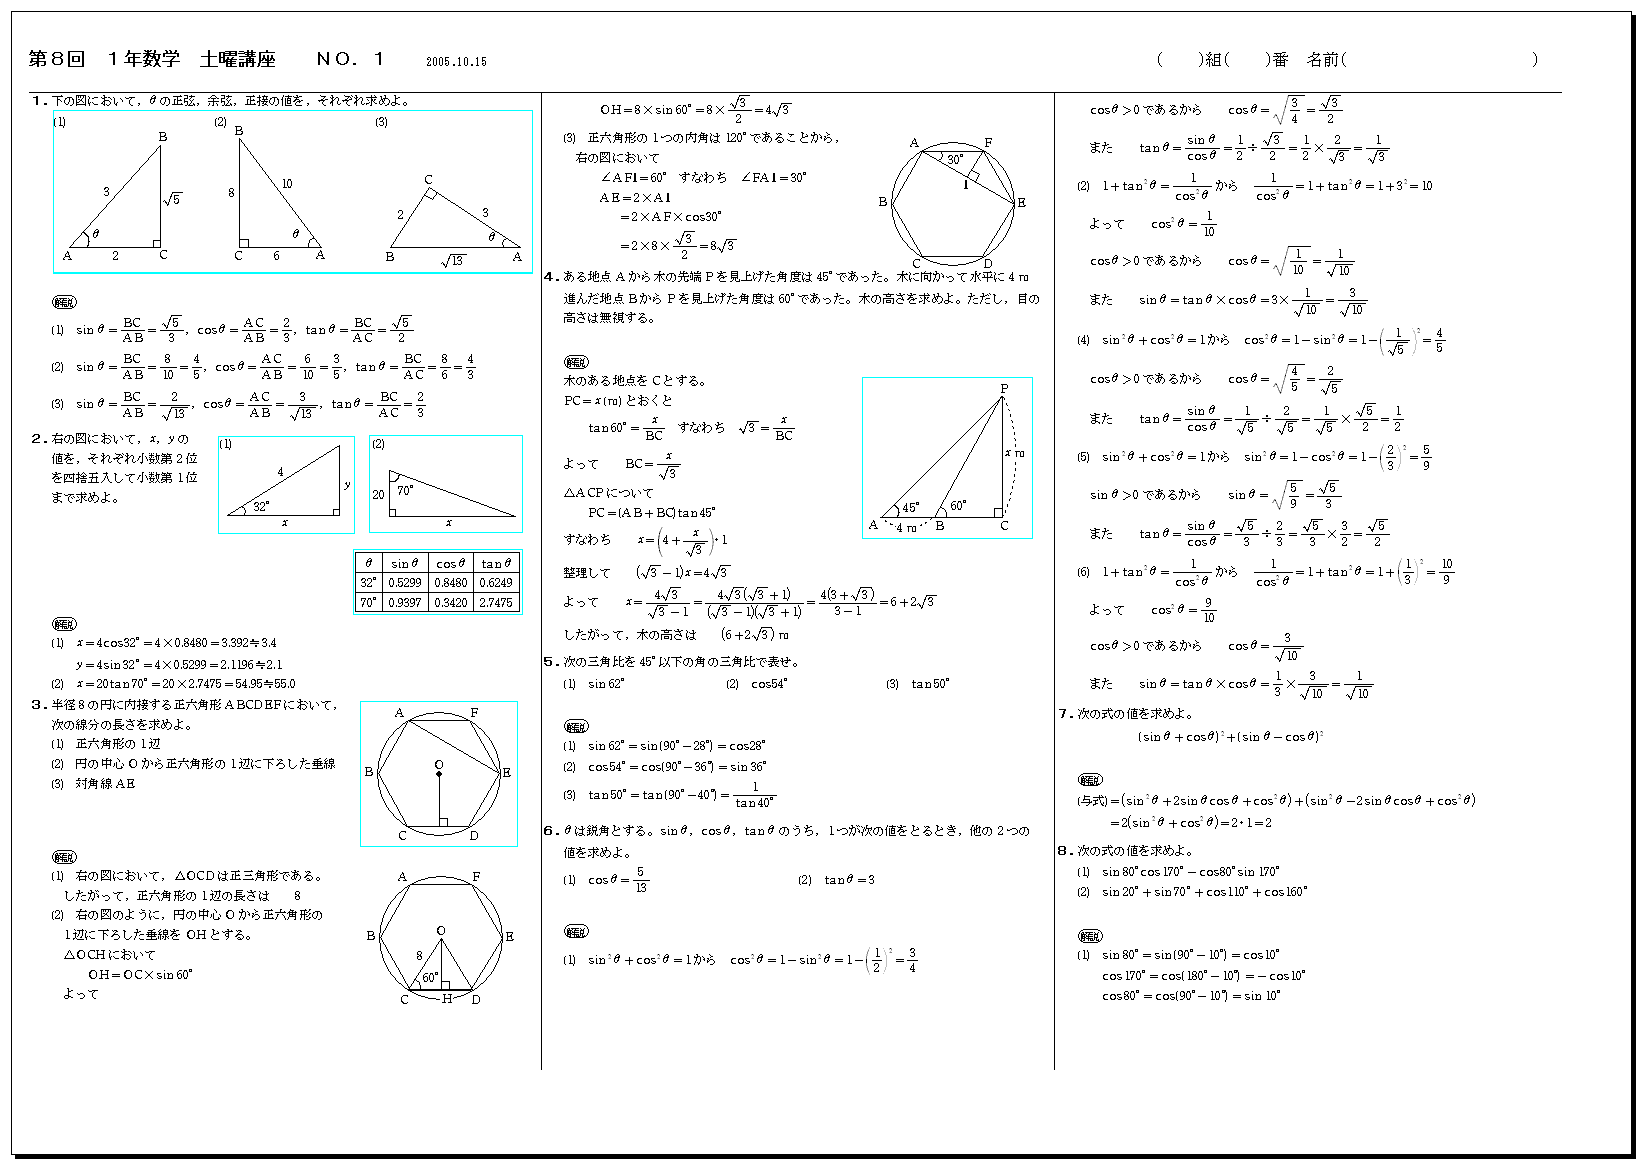 第８回　１年数学　土曜講座　　ＮＯ．１　　2005.10.15　　(　　)組(　　)番　名前(　　　　　　　　　　)
１．下の図において，θの正弦，余弦，正接の値を，それぞれ求めよ。
(1)　(2)　(3)
B 3 √5 θ A 2 C
B 8 10 θ C 6 A
C 2 3 θ B √13 A
解説
(1)　sinθ＝BC/AB＝√5/3，cosθ＝AC/AB＝2/3，tanθ＝BC/AC＝√5/2
(2)　sinθ＝BC/AB＝8/10＝4/5，cosθ＝AC/AB＝6/10＝3/5，tanθ＝BC/AC＝8/6＝4/3
(3)　sinθ＝BC/AB＝2/√13，cosθ＝AC/AB＝3/√13，tanθ＝BC/AC＝2/3
２．右の図において，x，yの
値を，それぞれ小数第２位
を四捨五入して小数第１位
まで求めよ。
(1) 4 32° x y
(2) 20 70° x
θ　sinθ　cosθ　tanθ
32°　0.5299　0.8480　0.6249
70°　0.9397　0.3420　2.7475
解説
(1)　x＝4cos32°＝4×0.8480＝3.392≒3.4
y＝4sin32°＝4×0.5299＝2.1196≒2.1
(2)　x＝20tan70°＝20×2.7475＝54.95≒55.0
３．半径８の円に内接する正六角形ＡＢＣＤＥＦにおいて，
次の線分の長さを求めよ。
(1)　正六角形の１辺
(2)　円の中心Ｏから正六角形の１辺に下ろした垂線
(3)　対角線ＡＥ
A F B O E C D
解説
(1)　右の図において，△OCDは正三角形である。
したがって，正六角形の１辺の長さは　　8
(2)　右の図のように，円の中心Ｏから正六角形の
１辺に下ろした垂線を OH とする。
△OCHにおいて
OH＝OC×sin60°
よって
A F B O E 8 60° C H D
OH＝8×sin60°＝8×√3/2＝4√3
(3)　正六角形の１つの内角は 120°であることから，
右の図において
∠AFI＝60°　すなわち　∠FAI＝30°
AE＝2×AI
＝2×AF×cos30°
＝2×8×√3/2＝8√3
A F 30° I B E C D
４．ある地点Ａから木の先端Ｐを見上げた角度は 45°であった。木に向かって水平に 4 m
進んだ地点Ｂから Ｐを見上げた角度は 60°であった。木の高さを求めよ。ただし，目の
高さは無視する。
解説
木のある地点をＣとする。
PC＝x(m)とおくと
tan60°＝x/BC　すなわち　√3＝x/BC
よって　　BC＝x/√3
△ACPについて
PC＝(AB＋BC)tan45°
すなわち　　x＝(4＋x/√3)・1
整理して　　(√3－1)x＝4√3
よって　　x＝4√3/(√3－1)＝4√3(√3＋1)/(√3－1)(√3＋1)＝4(3＋√3)/(3－1)＝6＋2√3
したがって，木の高さは　　(6＋2√3) m
P x m A 45° 4 m B 60° C
５．次の三角比を 45°以下の角の三角比で表せ。
(1)　sin62°　(2)　cos54°　(3)　tan50°
解説
(1)　sin62°＝sin(90°－28°)＝cos28°
(2)　cos54°＝cos(90°－36°)＝sin36°
(3)　tan50°＝tan(90°－40°)＝1/tan40°
６．θは鋭角とする。sinθ，cosθ，tanθのうち，１つが次の値をとるとき，他の２つの
値を求めよ。
(1)　cosθ＝5/13　(2)　tanθ＝3
解説
(1)　sin²θ＋cos²θ＝1から　cos²θ＝1－sin²θ＝1－(1/2)²＝3/4
cosθ＞0であるから　　cosθ＝√(3/4)＝√3/2
また　　tanθ＝sinθ/cosθ＝1/2÷√3/2＝1/2×2/√3＝1/√3
(2)　1＋tan²θ＝1/cos²θから　1/cos²θ＝1＋tan²θ＝1＋3²＝10
よって　　cos²θ＝1/10
cosθ＞0であるから　　cosθ＝√(1/10)＝1/√10
また　　sinθ＝tanθ×cosθ＝3×1/√10＝3/√10
(4)　sin²θ＋cos²θ＝1から　cos²θ＝1－sin²θ＝1－(1/√5)²＝4/5
cosθ＞0であるから　　cosθ＝√(4/5)＝2/√5
また　　tanθ＝sinθ/cosθ＝1/√5÷2/√5＝1/√5×√5/2＝1/2
(5)　sin²θ＋cos²θ＝1から　sin²θ＝1－cos²θ＝1－(2/3)²＝5/9
sinθ＞0であるから　　sinθ＝√(5/9)＝√5/3
また　　tanθ＝sinθ/cosθ＝√5/3÷2/3＝√5/3×3/2＝√5/2
(6)　1＋tan²θ＝1/cos²θから　1/cos²θ＝1＋tan²θ＝1＋(1/3)²＝10/9
よって　　cos²θ＝9/10
cosθ＞0であるから　　cosθ＝3/√10
また　　sinθ＝tanθ×cosθ＝1/3×3/√10＝1/√10
７．次の式の値を求めよ。
(sinθ＋cosθ)²＋(sinθ－cosθ)²
解説
(与式)＝(sin²θ＋2sinθcosθ＋cos²θ)＋(sin²θ－2sinθcosθ＋cos²θ)
＝2(sin²θ＋cos²θ)＝2・1＝2
８．次の式の値を求めよ。
(1)　sin80°cos170°－cos80°sin170°
(2)　sin20°＋sin70°＋cos110°＋cos160°
解説
(1)　sin80°＝sin(90°－10°)＝cos10°
cos170°＝cos(180°－10°)＝－cos10°
cos80°＝cos(90°－10°)＝sin10°